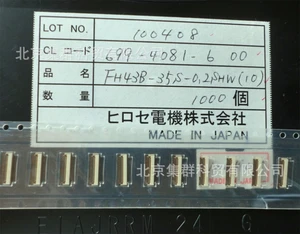 LOT NO. 100408
CL コード 699-4081-6 00
品名 FH43B-35S-0.2SHW(10)
数量 1000 個
ヒロセ電機株式会社
MADE IN JAPAN
北京集群科贸有限公司